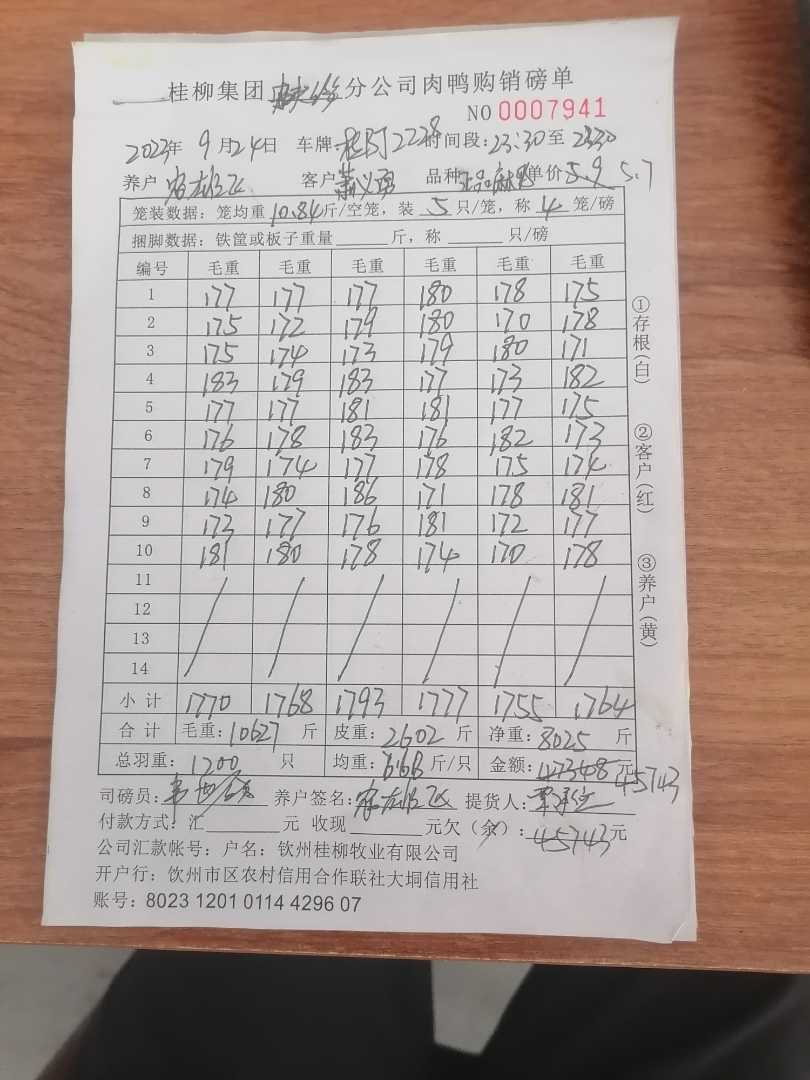 桂柳集团 分公司肉鸭购销磅单
NO 0007941
2023年 9月24日 车牌: 2228 时间段:23:30至 2330
养户 客户 品种 单价5.9 5.7
笼装数据：笼均重10.84斤/空笼，装 5 只/笼，称 4 笼/磅
捆脚数据：铁筐或板子重量 斤，称 只/磅
编号 毛重 毛重 毛重 毛重 毛重 毛重
1 177 177 177 180 178 175
2 175 172 179 180 170 178
3 175 174 173 179 180 171
4 183 179 183 177 173 182
5 177 177 181 181 177 175
6 176 178 183 176 182 173
7 179 174 177 178 175 174
8 174 180 186 171 178 181
9 173 177 176 181 172 177
10 181 180 178 174 170 178
11
12
13
14
小计 1770 1768 1793 1777 1755 1764
合计 毛重:10627 斤 皮重:2602 斤 净重:8025 斤
总羽重:1200 只 均重:6.68斤/只 金额:47348元 45743
司磅员: 养户签名: 提货人:
付款方式:汇 元 收现 元欠（余）:45743元
公司汇款帐号：户名：钦州桂柳牧业有限公司
开户行：饮州市区农村信用合作联社大垌信用社
账号：8023 1201 0114 4296 07
①存根(白)
②客户(红)
③养户(黄)